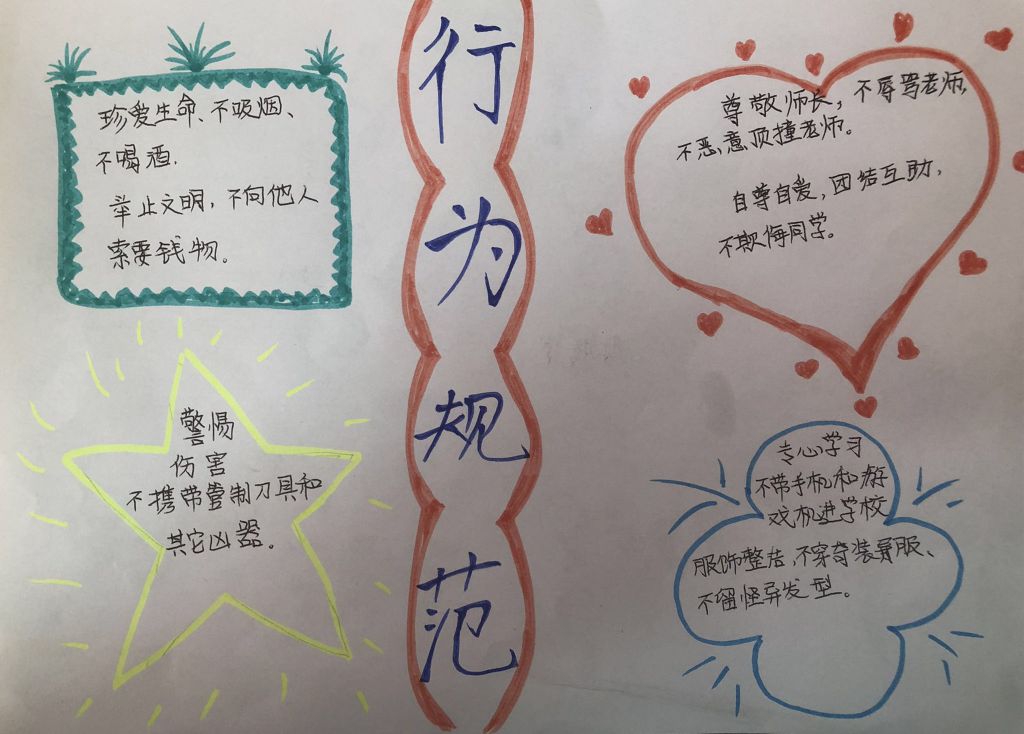 行为规范
珍爱生命、不吸烟、
不喝酒.
举止文明，不向他人
索要钱物。
尊敬师长，不辱骂老师,
不恶意顶撞老师。
自尊自爱，团结互助,
不欺侮同学。
警惕
伤害
不携带管制刀具和
其它凶器。
专心学习
不带手机和游
戏机进学校
服饰整洁,不穿奇装异服、
不留怪异发型。